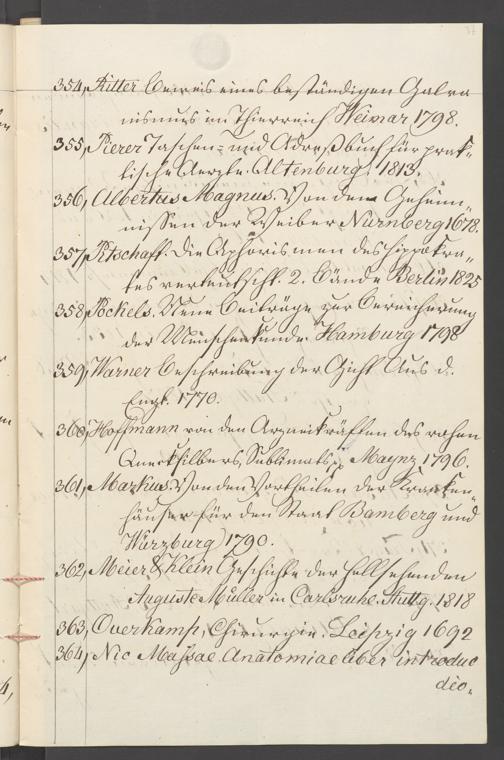 354, Ritter Beweis eines beständigen Galva
nismus im Thierreich Weimar 1798.
355, Pierer Taschen- und Adreßbuch für prak-
tische Aerzte. Altenburg. 1813.
356, Albertus Magnus. Von den Geheim-
nissen der Weiber Nürnberg 1678.
357, Pitschaft. Die Aphorismen des Hippokra-
tes verteutscht. 2. Bände Berlin 1825
358, Pockels. Neue Beiträge zur Bereicherung
der Menschenkunde Hamburg 1798
359, Warner Beschreibung der Gicht Aus d.
Engl. 1770.
360, Hoffmann von den Arzneikräften des rohen
Quecksilbers, Sublimats Maynz 1796.
361, Markus. Von den Vortheilen der Kranken-
häuser für den Staat Bamberg und
Würzburg 1790.
362, Meier & Klein Geschichte der hellsehenden
Auguste Müller in Carlsruhe. Stuttg. 1818
363, Overkamp, Chirurgie. Leipzig 1692
364, Nic Massae. Anatomiae liber introduc
dio.